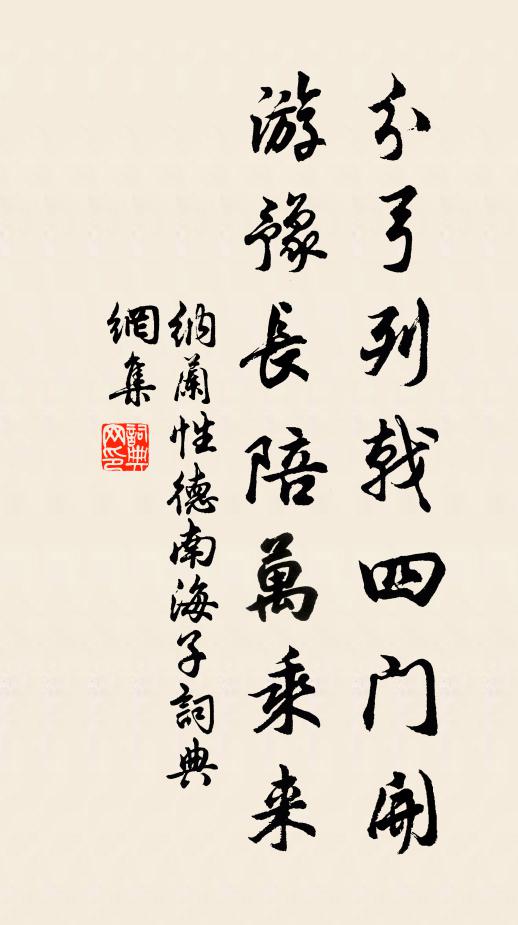 分弓列戟四門開
游豫長陪萬乘来
納蘭性德南海子詞典
網集
詞典
网印